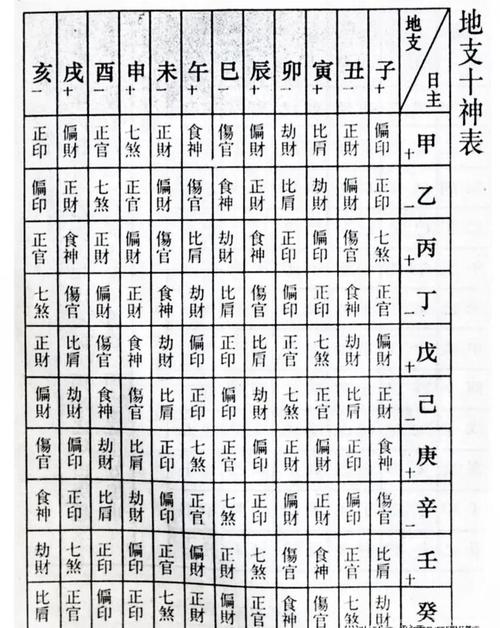 地支十神表
地支 日主 子+ 丑一 寅+ 卯一 辰+ 巳一 午+ 未一 申+ 酉一 戌+ 亥一
甲+ 偏印 正財 比肩 劫財 偏財 傷官 食神 正財 七煞 正官 偏財 正印
乙一 正印 偏財 劫財 比肩 正財 食神 傷官 偏財 正官 七煞 正財 偏印
丙+ 七煞 傷官 偏印 正印 食神 劫財 比肩 傷官 偏財 正財 食神 正官
丁一 正官 食神 正印 偏印 傷官 比肩 劫財 食神 正財 偏財 傷官 七煞
戊+ 偏財 劫財 七煞 正官 比肩 正印 偏印 劫財 食神 傷官 比肩 正財
己一 正財 比肩 正官 七煞 劫財 偏印 正印 比肩 傷官 食神 劫財 偏財
庚+ 食神 正印 偏財 正財 偏印 正官 七煞 正印 比肩 劫財 偏印 傷官
辛一 傷官 偏印 正財 偏財 正印 七煞 正官 偏印 劫財 比肩 正印 食神
壬+ 比肩 正官 食神 傷官 七煞 正財 偏財 正官 偏印 正印 七煞 劫財
癸 劫財 七煞 傷官 食神 正官 偏財 正財 七煞 正印 偏印 正官 比肩